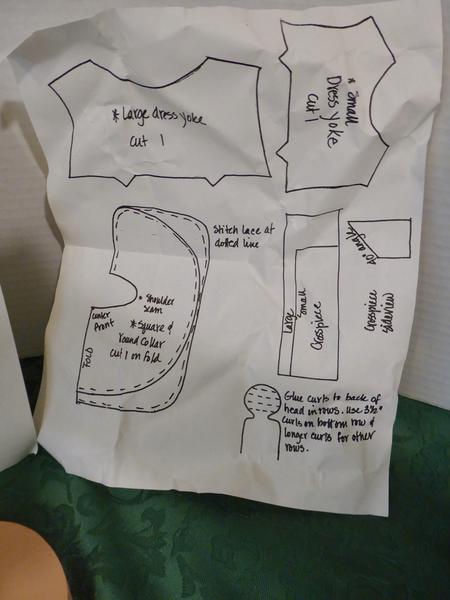 * Large dress yoke
cut 1
* Small
Dress yoke
cut 1
Stitch lace at
dotted line
• Shoulder
seam
center
front
* Square &
round collar
cut 1 on fold
FOLD
Large
Small
Crosspiece
angle
Crosspiece
sideview
Glue curls to back of
head in rows. Use 3½"
curls on bottom row &
longer curls for other
rows.